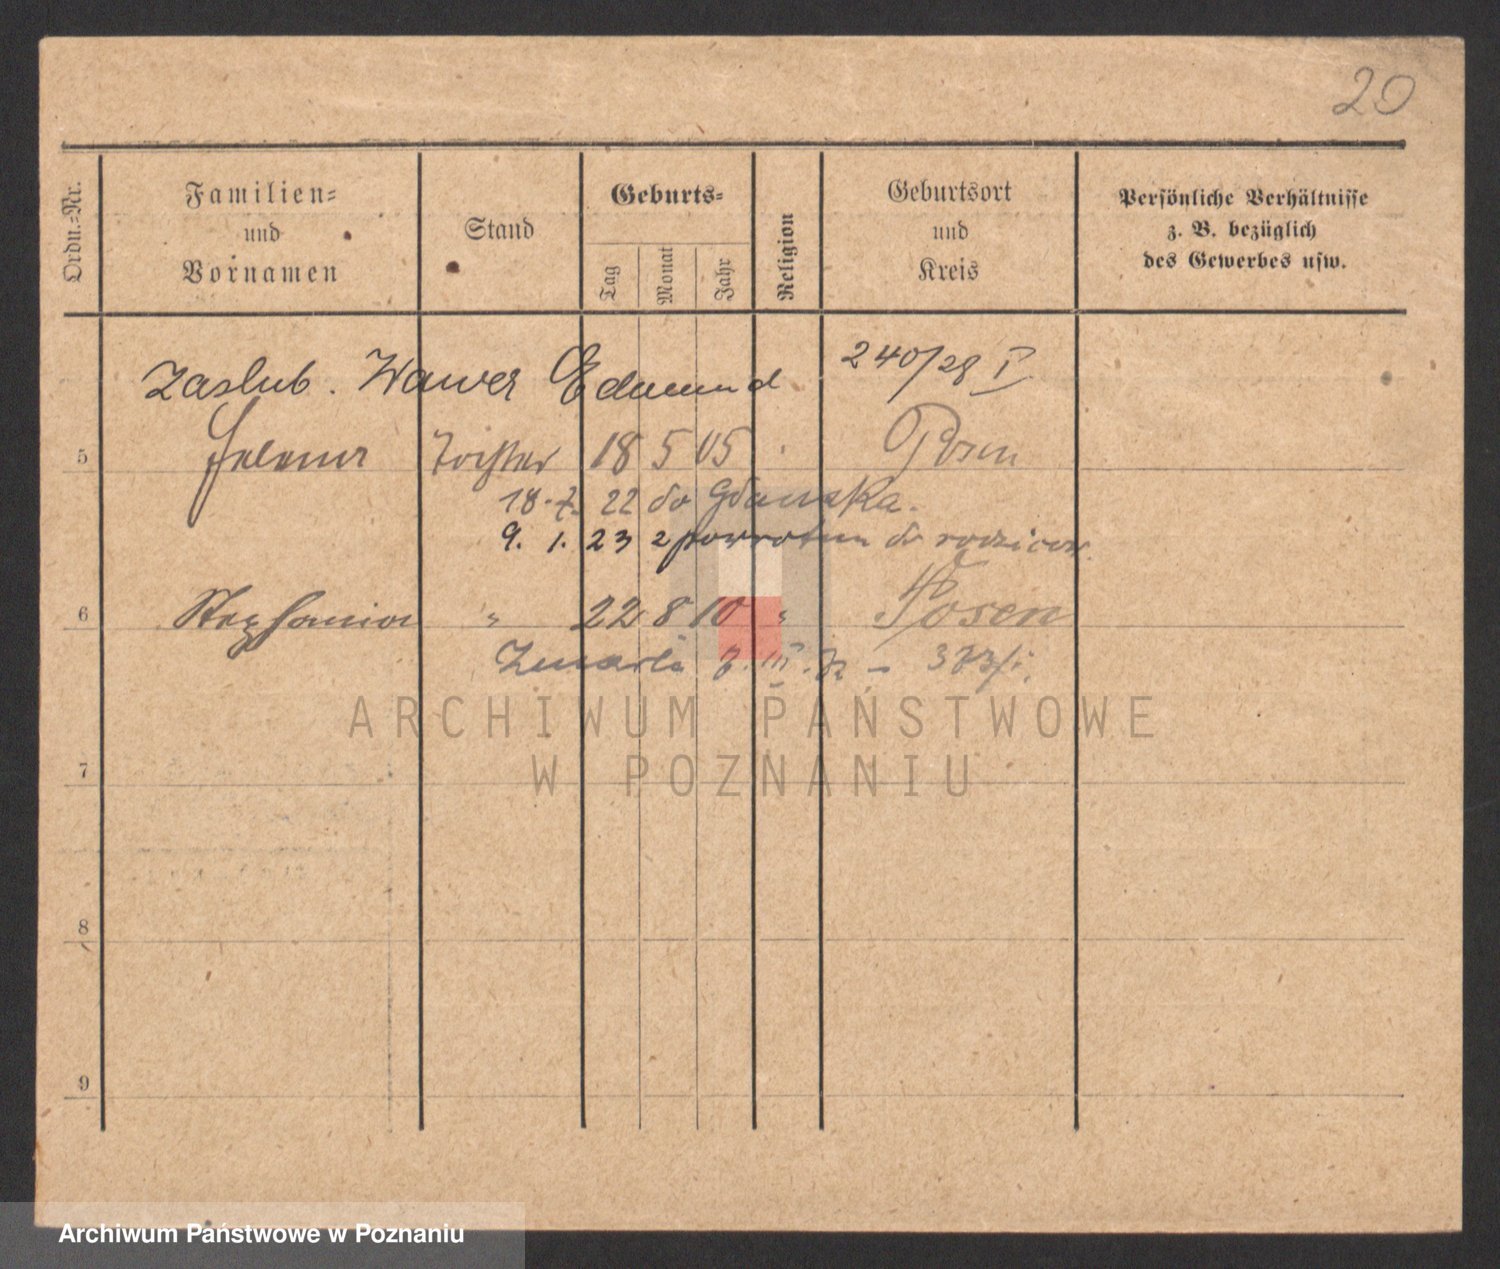 20
Ordn.=Nr.
Familien=
und
Vornamen
Stand
Geburts=
Tag
Monat
Jahr
Religion
Geburtsort
und
Kreis
Persönliche Verhältnisse
z. B. bezüglich
des Gewerbes usw.
Zaslub. Wawer Edmund 240/28 I
5 Helena Tochter 18 5 05 Posen
18. 7. 22 do Gdanska.
9. 1. 23 z powrotem do rodzicow.
6 Stephania " 22 8 10 " Posen
Zmarla III. –
ARCHIWUM PAŃSTWOWE
W POZNANIU
7
8
9
Archiwum Państwowe w Poznaniu